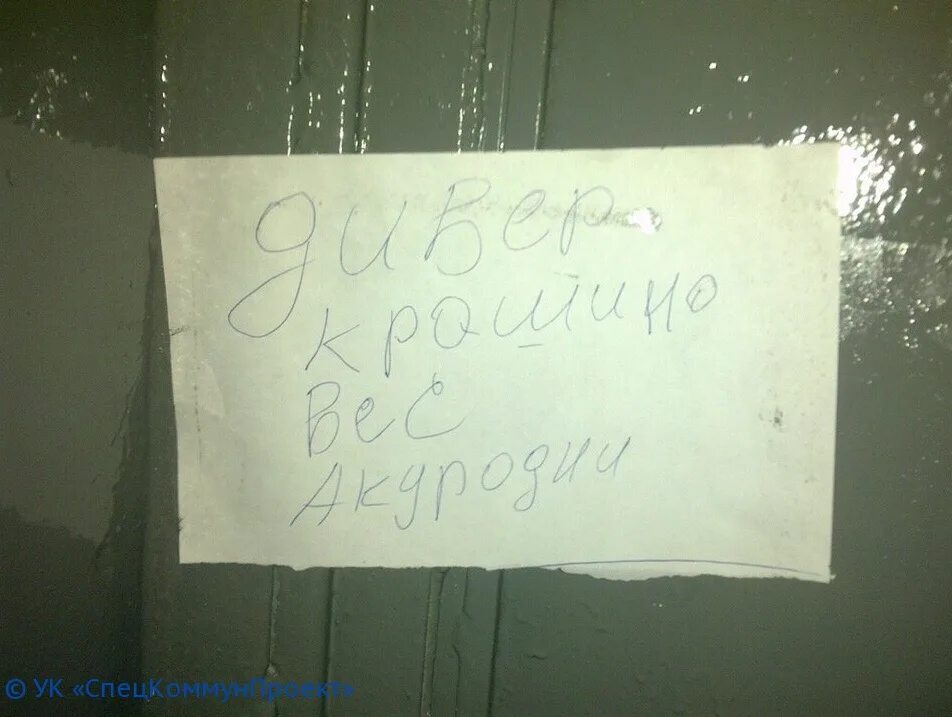 дивер
крашино
вес
Акуродни
© УК «СпецКоммунПроект»